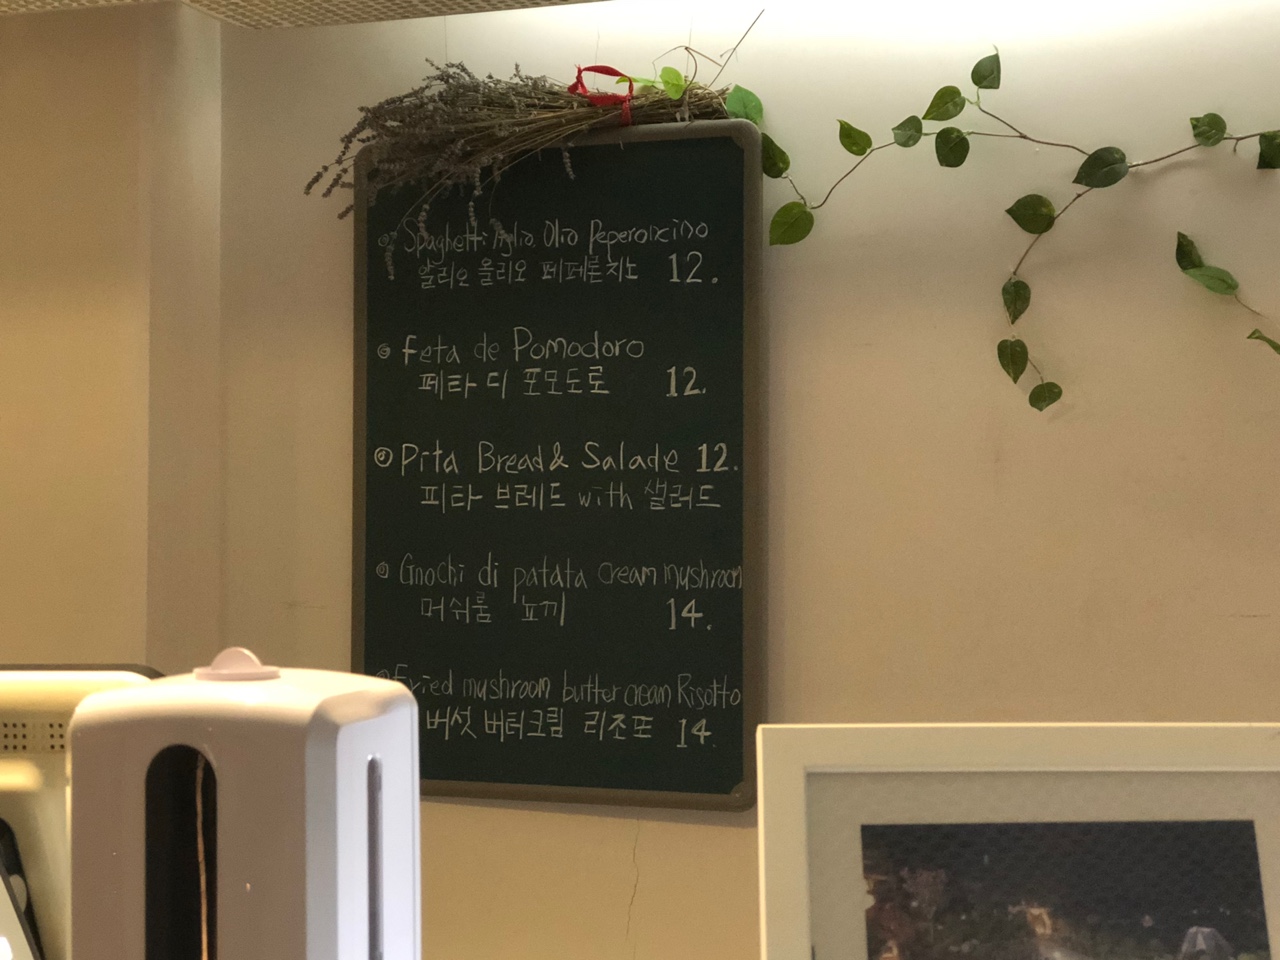 Spaghetti Aglio. Olio Peperoncino
알리오 올리오 페페론치노 12.
Feta de Pomodoro
페타 디 포모도로 12.
Pita Bread & Salade 12.
피타 브레드 with 샐러드
Gnochi di patata cream mushroom
머쉬룸 뇨끼 14.
Fried mushroom butter cream Risotto
버섯 버터크림 리조또 14.